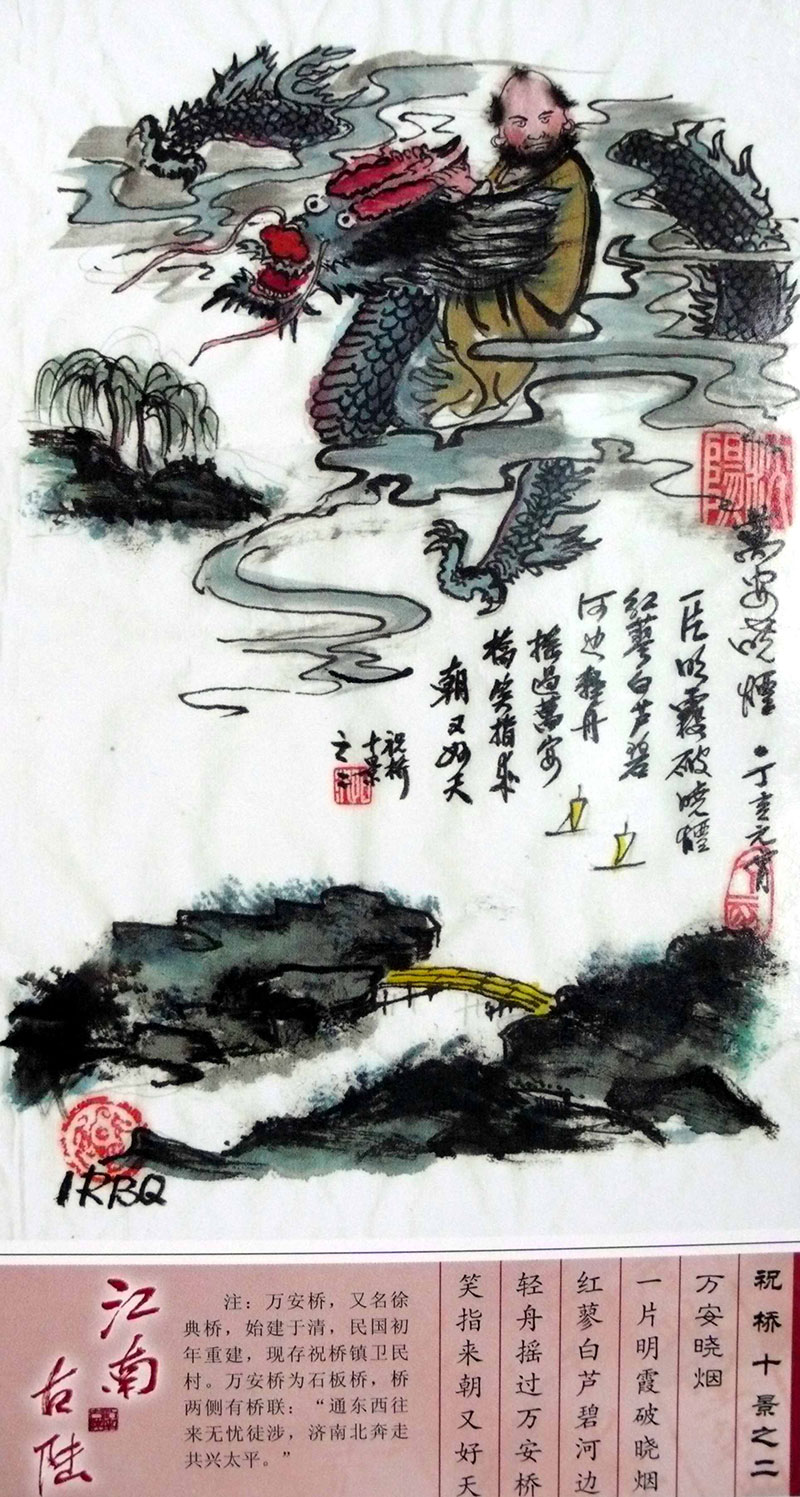 萬安曉煙·丁亥元宵
一片明霞破曉煙
红蓼白芦碧
河边轻舟
摇過萬安
橋笑指来
朝又好天
祝桥
十景
之二
1RBQ
祝桥十景之二
万安晓烟
一片明霞破晓烟
红蓼白芦碧河边
轻舟摇过万安桥
笑指来朝又好天
注：万安桥，又名徐
典桥，始建于清，民国初
年重建，现存祝桥镇卫民
村。万安桥为石板桥，桥
两侧有桥联：“通东西往
来无忧徒涉，济南北奔走
共兴太平。”
江南
古陆